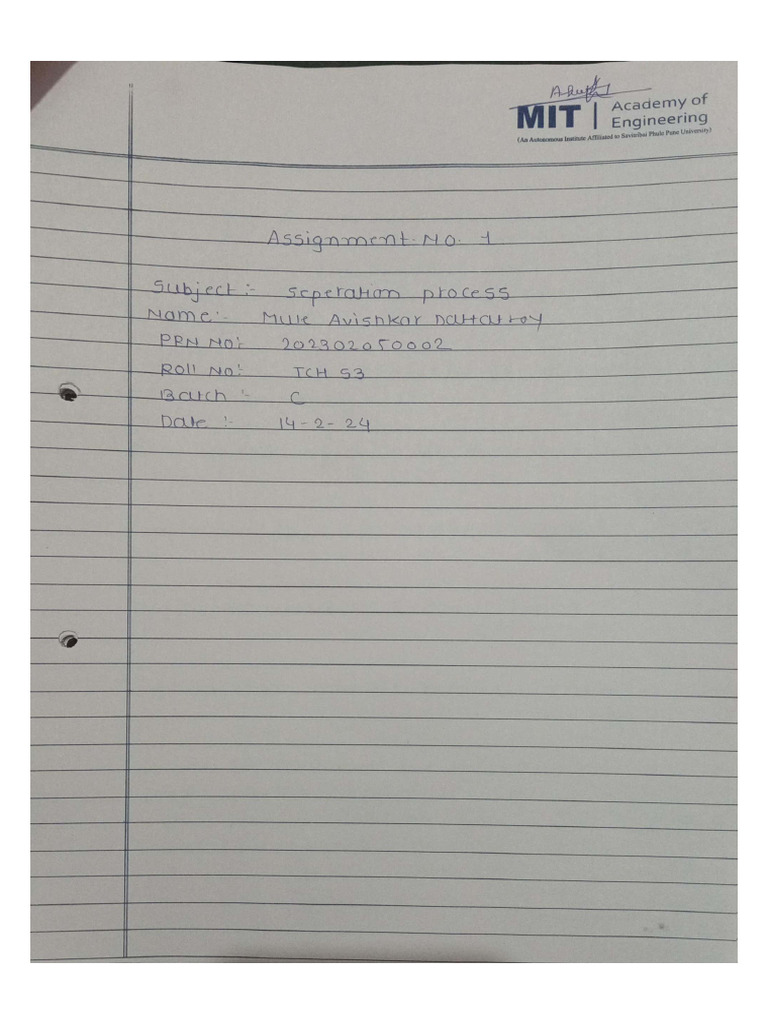 MIT | Academy of
Engineering
(An Autonomous Institute Affiliated to Savitribai Phule Pune University)
Assignment No. 1
Subject :- Seperation process
Name :- Mule Avishkar Dattatray
PRN No:- 202302050002
Roll No:- TCH 53
Batch :- C
Date :- 14-2-24